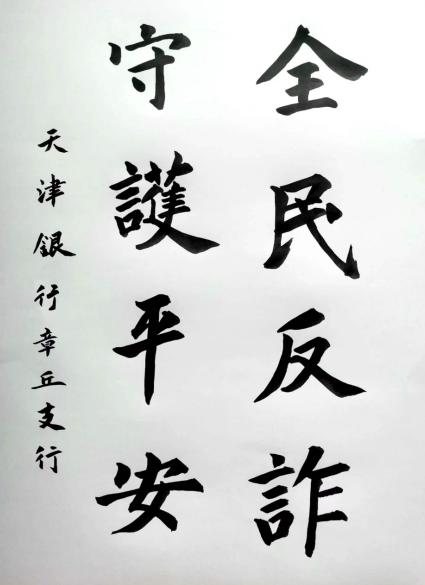 全民反詐
守護平安
天津銀行章丘支行